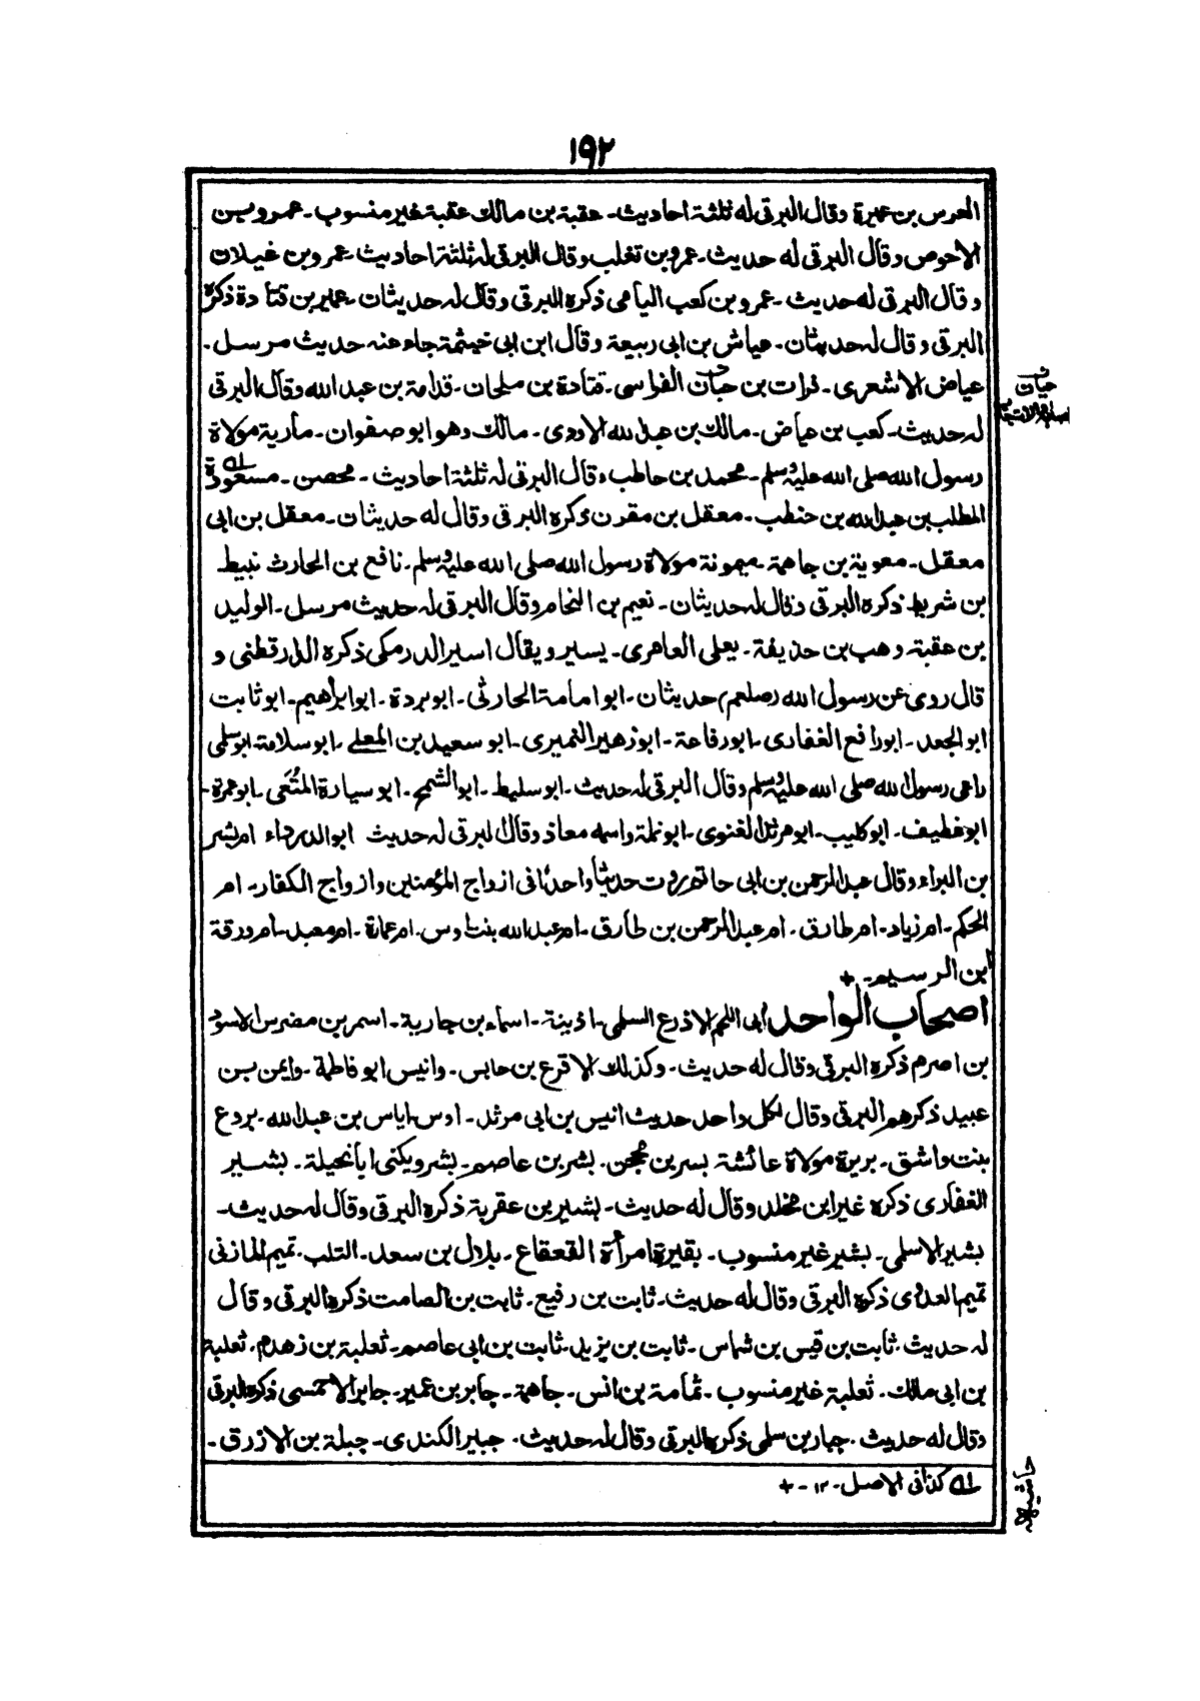 ١٩٢
العرس بن عميرة وقال البرقي له ثلثة احاديث۔ عقبة بن مالك عقبة غير منسوب۔ عمرو بن
الاحوص وقال البرقي له حديث۔ عمرو بن تغلب وقال البرقي له ثلثة احاديث۔ عمرو بن غيلان
وقال البرقي له حديث۔ عمرو بن كعب اليامي ذكره البرقي وقال له حديثان۔ عمير بن قتادة ذكره
البرقي وقال له حديثان۔ عياش بن ابي ربيعة وقال ابن ابي خيثمة جاء عنه حديث مرسل۔
عياض الاشعري۔ فرات بن حبات الفراسي۔ قتادة بن ملحان۔ قدامة بن عبد الله وقال البرقي
له حديث۔ كعب بن عياض۔ مالك بن عبد الله الاودي۔ مالك وهو ابو صفوان۔ مارية مولاة
رسول الله صلى الله عليه وسلم۔ محمد بن حاطب وقال البرقي له ثلثة احاديث۔ محصن۔ مسعودة
المطلب بن عبد الله بن حنطب۔ معقل بن مقرن ذكره البرقي وقال له حديثان۔ معقل بن ابي
معقل۔ معوية بن جاهمة۔ ميمونة مولاة رسول الله صلى الله عليه وسلم۔ نافع بن الحارث نبيط
بن شريط ذكره البرقي وقال له حديثان۔ نعيم بن النحام وقال البرقي له حديث مرسل۔ الوليد
بن عقبة وهب بن حذيفة۔ يعلى العامري۔ يسير ويقال اسير الدرمكي ذكره الدارقطني و
قال روى عن رسول الله (صلعم) حديثان۔ ابو امامة الحارثي۔ ابو بردة۔ ابو ابراهيم۔ ابو ثابت
ابو الجعد۔ ابو رافع الغفاري۔ ابو رفاعة۔ ابو زهير النميري۔ ابو سعيد بن المعلى۔ ابو سلامة۔ ابو سلمى
راعي رسول الله صلى الله عليه وسلم وقال البرقي له حديث۔ ابو سليط۔ ابو الشموح۔ ابو سيارة المتعى۔ ابو عمرة۔
ابو غطيف۔ ابو كليب۔ ابو مرثد الغنوي۔ ابو نملة واسمه معاذ وقال البرقي له حديث ابو الدرداء ام بشر
بن البراء وقال عبد الرحمن بن ابي حاتم روت حديثا واحدا في ازواج المؤمنين وازواج الكفار۔ ام
الحكم۔ ام زياد۔ ام طارق۔ ام عبد الرحمن بن طارق۔ ام عبد الله بنت اوس۔ ام عمارة۔ ام معبد۔ ام ورقة
ابن الرسيم۔ +
اصحاب الواحد ابي اللحم الاذرع السلمي۔ اذينة۔ اسماء بن جارية۔ اسمر بن مضرس الاسود
بن اصرم ذكره البرقي وقال له حديث۔ وكذلك الاقرع بن حابس۔ وانيس ابو فاطمة۔ وايمن بن
عبيد ذكرهم البرقي وقال لكل واحد حديث انيس بن ابي مرثد۔ اوس۔ اياس بن عبد الله۔ بروع
بنت واشق۔ بريرة مولاة عائشة بسر بن محجن۔ بشر بن عاصم۔ بشر ويكنى ابا نحيلة۔ بشير
الغفاري ذكره غير ابن مخلد وقال له حديث۔ بشير بن عقربة ذكره البرقي وقال له حديث۔
بشير الاسلمي۔ بشير غير منسوب۔ بقيرة امرأة القعقاع۔ بلال بن سعد۔ التلب۔ تميم المازني
تميم العداى ذكره البرقي وقال له حديث۔ ثابت بن رفيع۔ ثابت بن الصامت ذكره البرقي وقال
له حديث۔ ثابت بن قيس بن شماس۔ ثابت بن يزيد۔ ثابت بن ابي عاصم۔ ثعلبة بن زهدم۔ ثعلبة
بن ابي مالك۔ ثعلبة غير منسوب۔ ثمامة بن انس۔ جاهمة۔ جابر بن عمير۔ جابر الاحمسي ذكره البرقي
وقال له حديث۔ جبار بن سلمى ذكره البرقي وقال له حديث۔ جبير الكندي۔ جبلة بن الازرق۔
له كذا في الاصل۔ ١٢۔ +
حيان
حاشيه